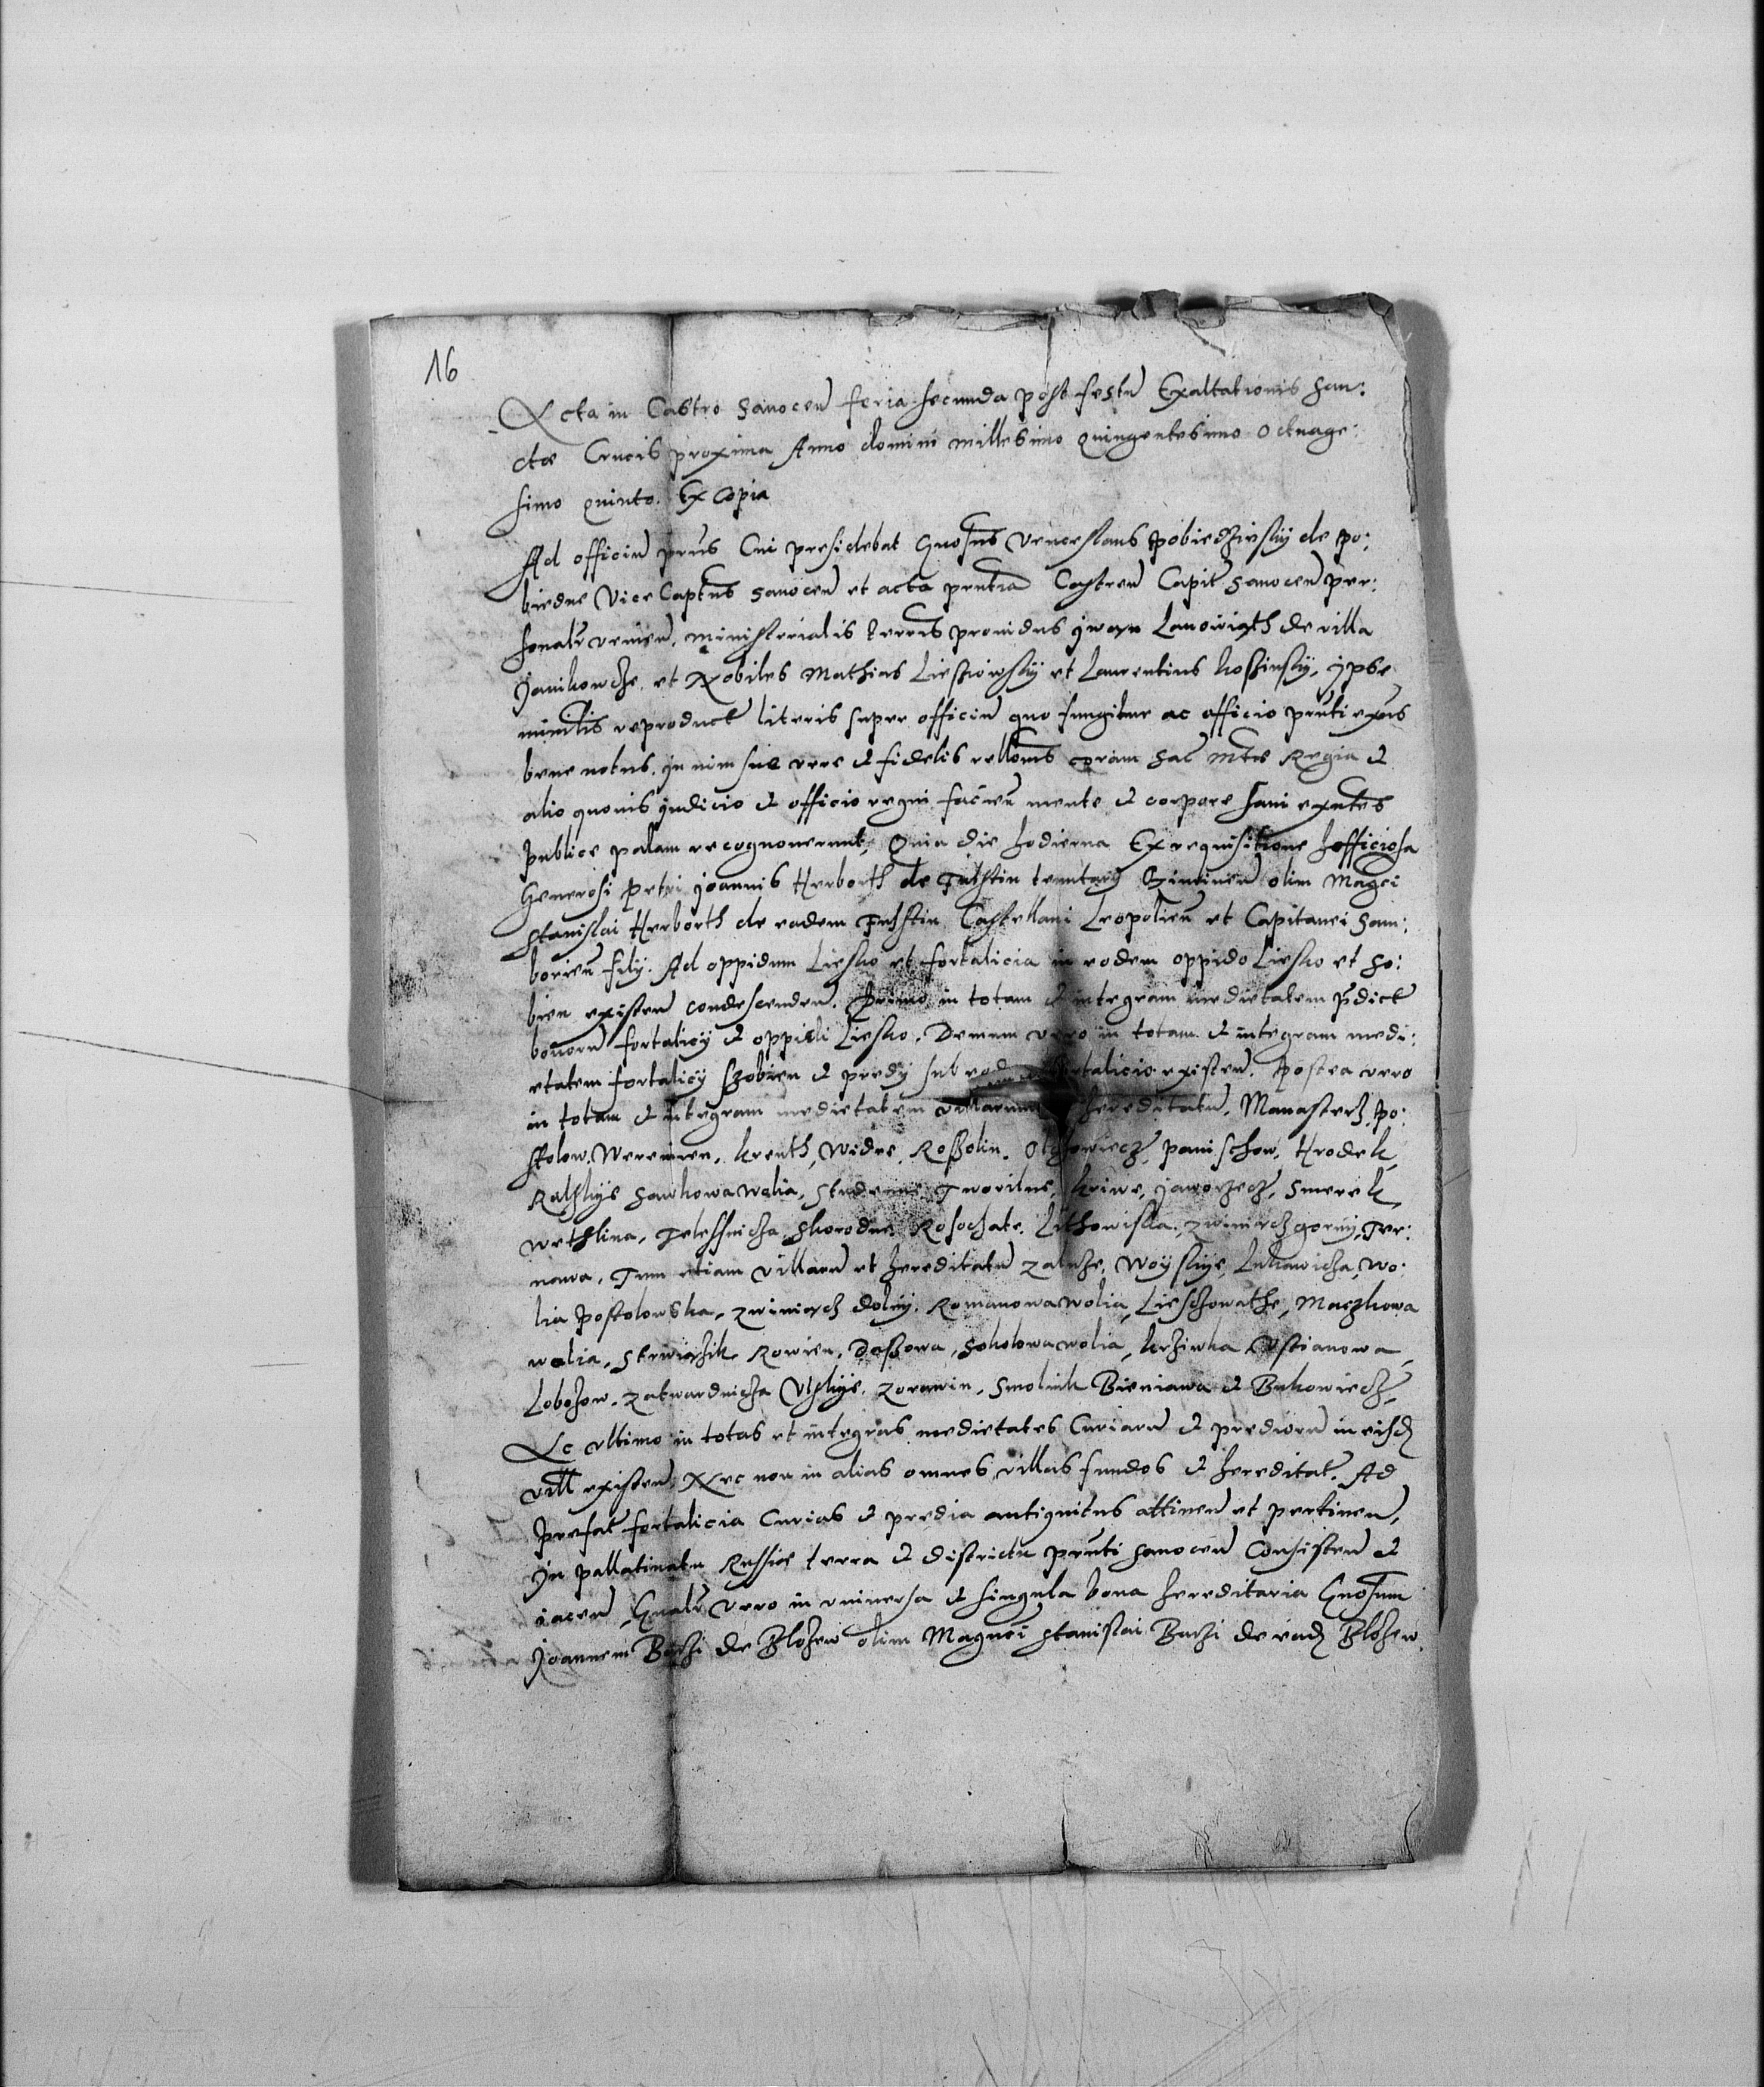 16
Acta in Castro Sanocen feria secunda post festu Exaltationis San:
ctæ Crucis proxima Anno domini millesimo quingentesimo Octuage:
simo quinto. Ex Copia
Ad officiu prns Cui presidebat Gnosus Venceslaus Pobiedzinsky de Po:
biedne Vice Captnus Sanocen et acta prntia Castren Capit Sanocen per:
sonalr venien. ministerialis terrens providus Iwan Lanowiath de villa
Jankowcze et Nobiles Mathias Lieskowsky et Laurentius Koschinsky, ypse
minlis reproduct literis super officiu quo fungitur ac officio prnti exns
bene notus. in vim suæ veræ & fidelis rellonis coram Sac Mte Regia &
alio quovis judicio & officio regni facien mente & corpore sani exntes
publice palam recognoverunt, Quia die hodierna Ex requisitione officiosa
Generosi Petri Joannis Herborth de Fulstin tenutarii olim Magci
Stanislai Herborth de eadem Fulstin Castellani Leopolien et Capitanei Sam:
borien filij. Ad oppidum Liesko et fortalicia in eodem oppido Liesko et So:
bien existen condescenden. Primo in totam & integram medietatem pdict
bonoru fortalicij & oppidi Liesko. Demum vero in totam & integram medi:
etatem fortalicij Szobien & predij sub fortalicio existen. Postea vero
in totam & integram medietatem villarum hereditatu, Manasterz, Po:
stolow, Weremien, Krenth, Widne, Rossolin, Olchowiecz, Panischow, Hrodek,
Raiskye Sawkowa Wolia, Studenne Tworilne, Kriwe, Jaworzecz, Smerek
Wethlina, Telessnicza Skorodne Rosochate Lithowiska, Zwiniacz gorny, Ter:
nawa, Tum etiam villaru et hereditatu Zaluze, Woyskye, Lukawicza, Wo:
lia Postolowska, Zwiniacz dolny. Romanowa Wolia, Lieschowathe, Maczkowa
wolia, Strwiazik Rowien, Dassowa, Sokolowa wolia, Krziwka Ustianowa
Lobozow, Zatwardnicza Ustkye. Zorawin, Smolnik Bieniawa & Bukowiecz,
Ac ultimo in totas et integras medietates Curiaru & prediorn in eisd
vill existen, Nec non in alias omnes villas fundos & hereditat. Ad
prefat fortalicia Curias & predia antiquitus attinen et pertinen,
In pallatinatu Russiæ terra & districtu prnti Sanocen Consisten &
iacen, Gnalr vero in universa & singula bona hereditaria Gnosum
Joannem Bachi de Blozew olim Magnci Stanislai Bachi de ead Blozew.